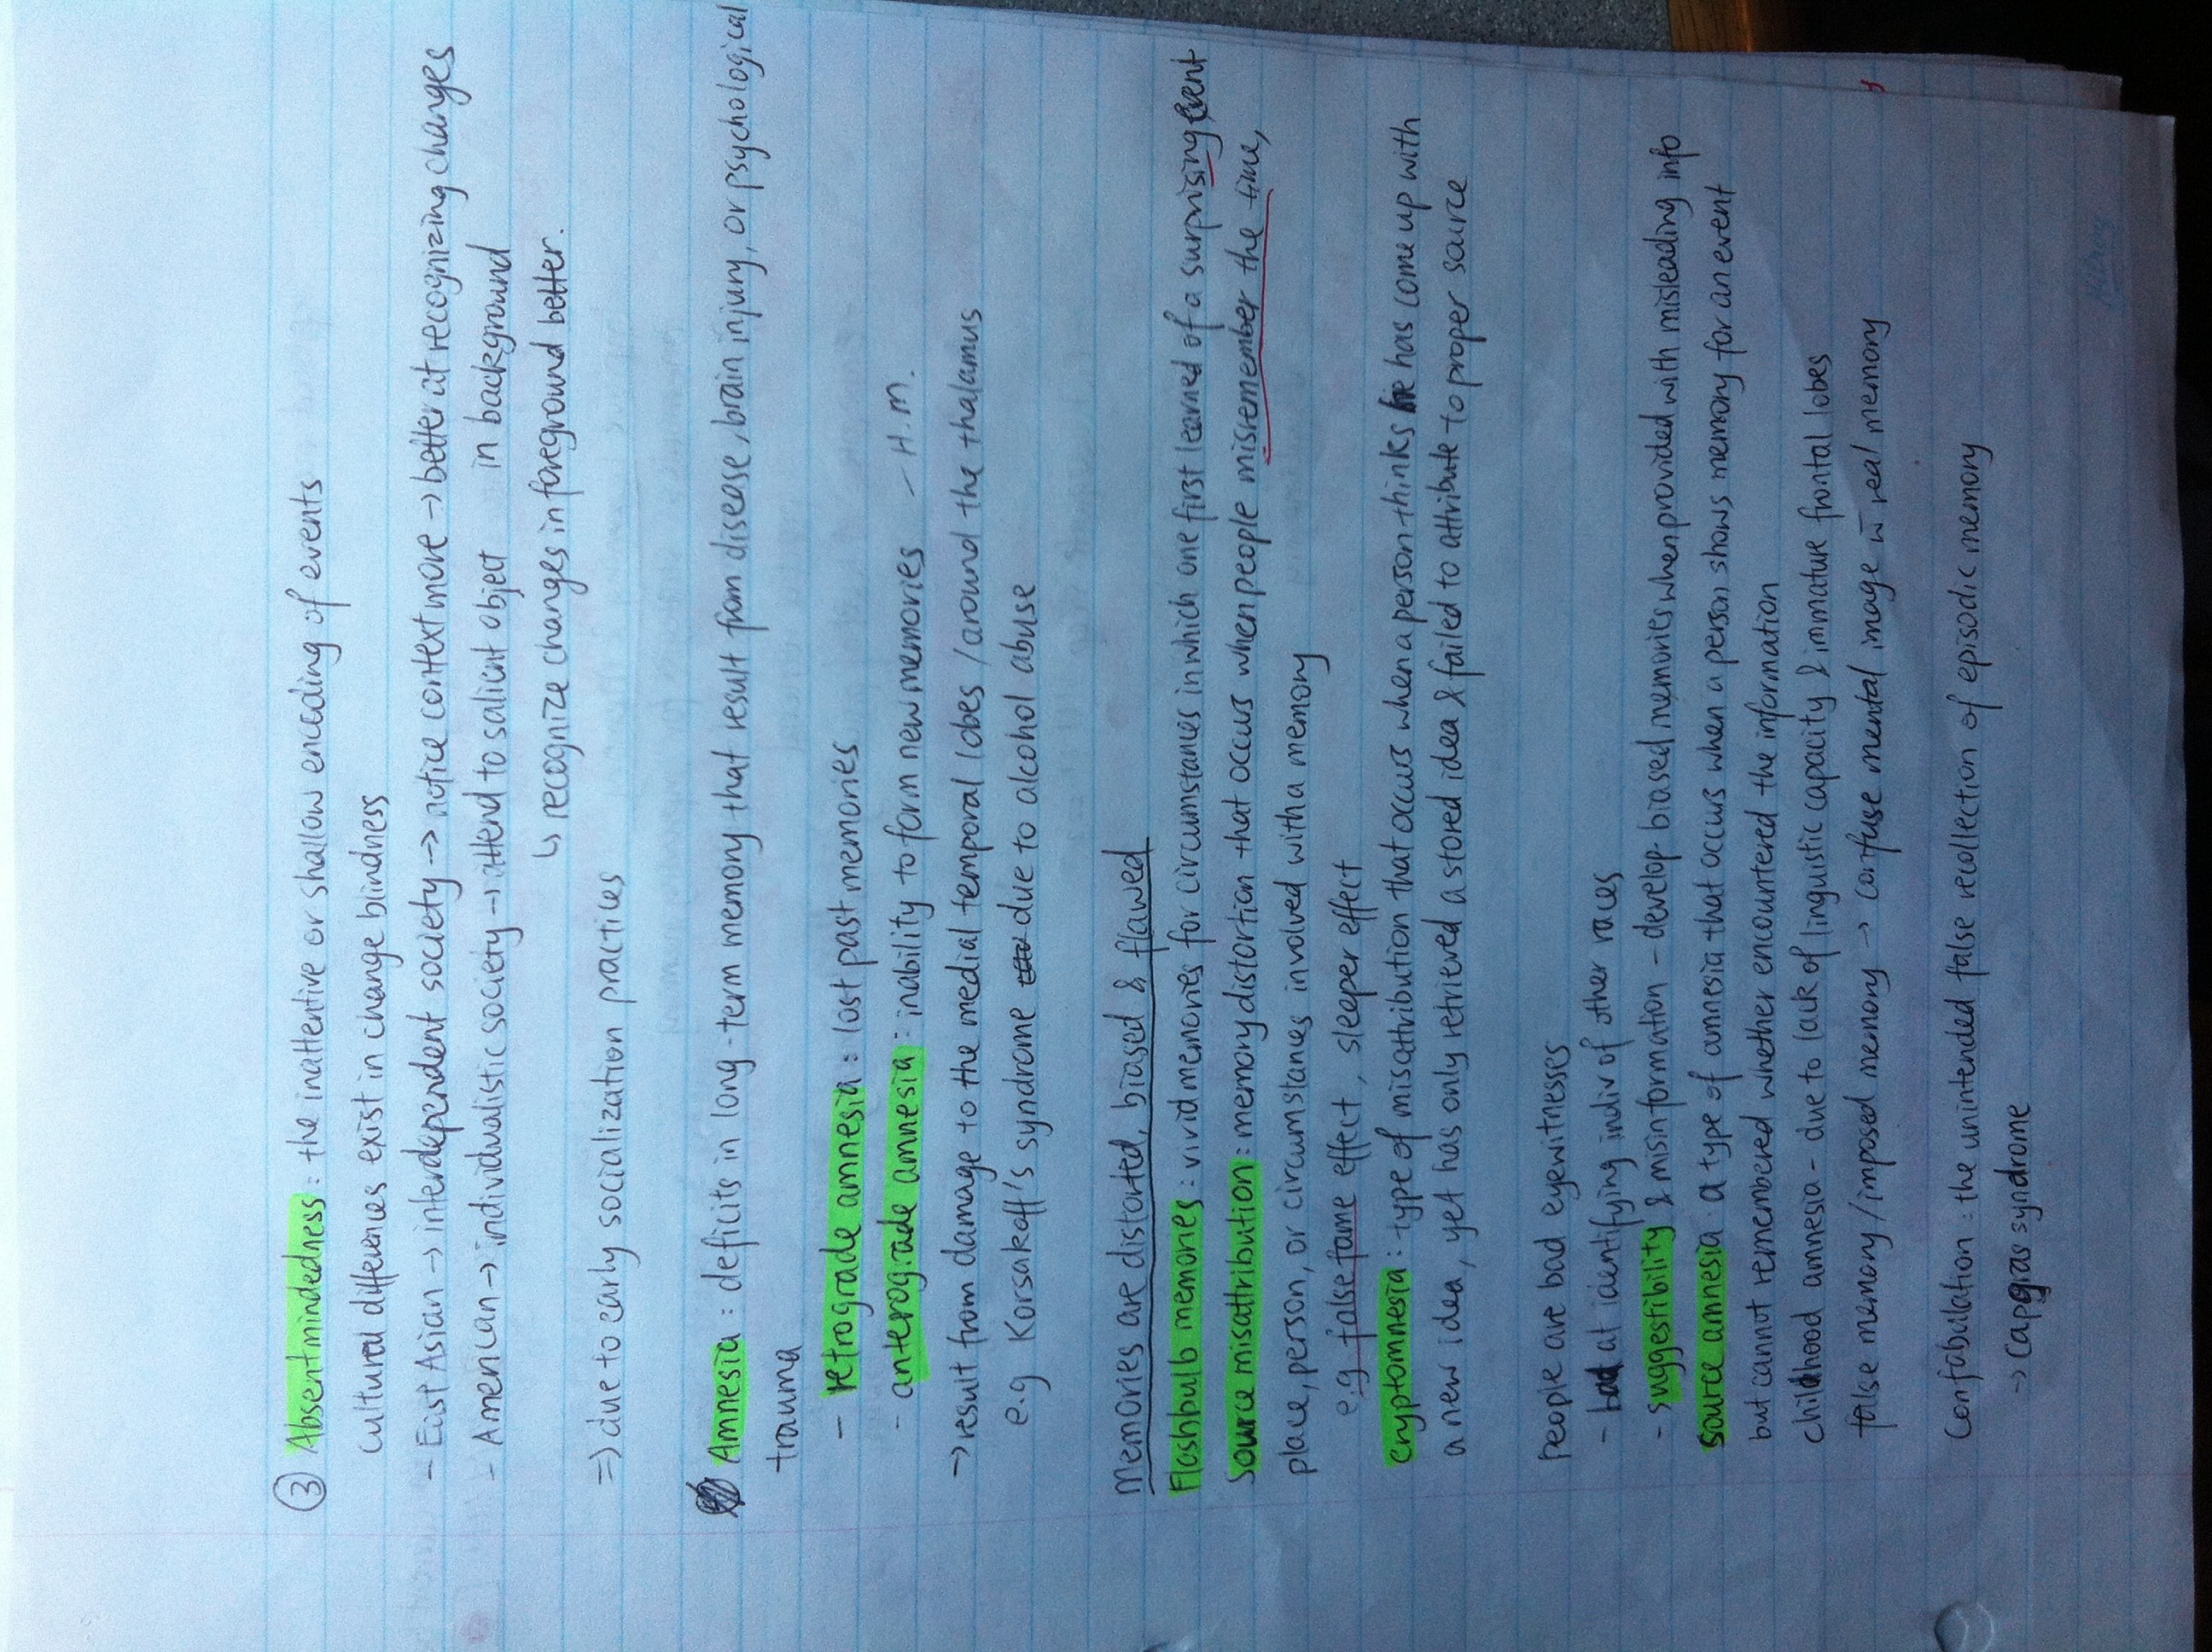 ③ Absentmindedness : the inattentive or shallow encoding of events
cultural differences exist in change blindness
- East Asian → interdependent society → notice context more → better at recognizing changes
in background
- American → individualistic society → attend to salient object
↳ recognize changes in foreground better.
⇒ due to early socialization practices
Amnesia : deficits in long-term memory that result from disease, brain injury, or psychological
trauma
- retrograde amnesia : lost past memories
- anterograde amnesia : inability to form new memories - H.M.
→ result from damage to the medial temporal lobes / around the thalamus
e.g Korsakoff's syndrome due to alcohol abuse
Memories are distorted, biased & flawed
Flashbulb memories : vivid memories for circumstances in which one first learned of a surprising event
Source misattribution : memory distortion that occurs when people misremember the time,
place, person, or circumstances involved with a memory
e.g false fame effect, sleeper effect
cryptomnesia : type of misattribution that occurs when a person thinks he has come up with
a new idea, yet has only retrieved a stored idea & failed to attribute to proper source
People are bad eyewitnesses
- bad at identifying indiv of other races
- suggestibility & misinformation - develop biased memories when provided with misleading info
source amnesia : a type of amnesia that occurs when a person shows memory for an event
but cannot remembered whether encountered the information
childhood amnesia - due to lack of linguistic capacity & immature frontal lobes
false memory / imposed memory → confuse mental image w real memory
Confabulation : the unintended false recollection of episodic memory
→ Capgras syndrome